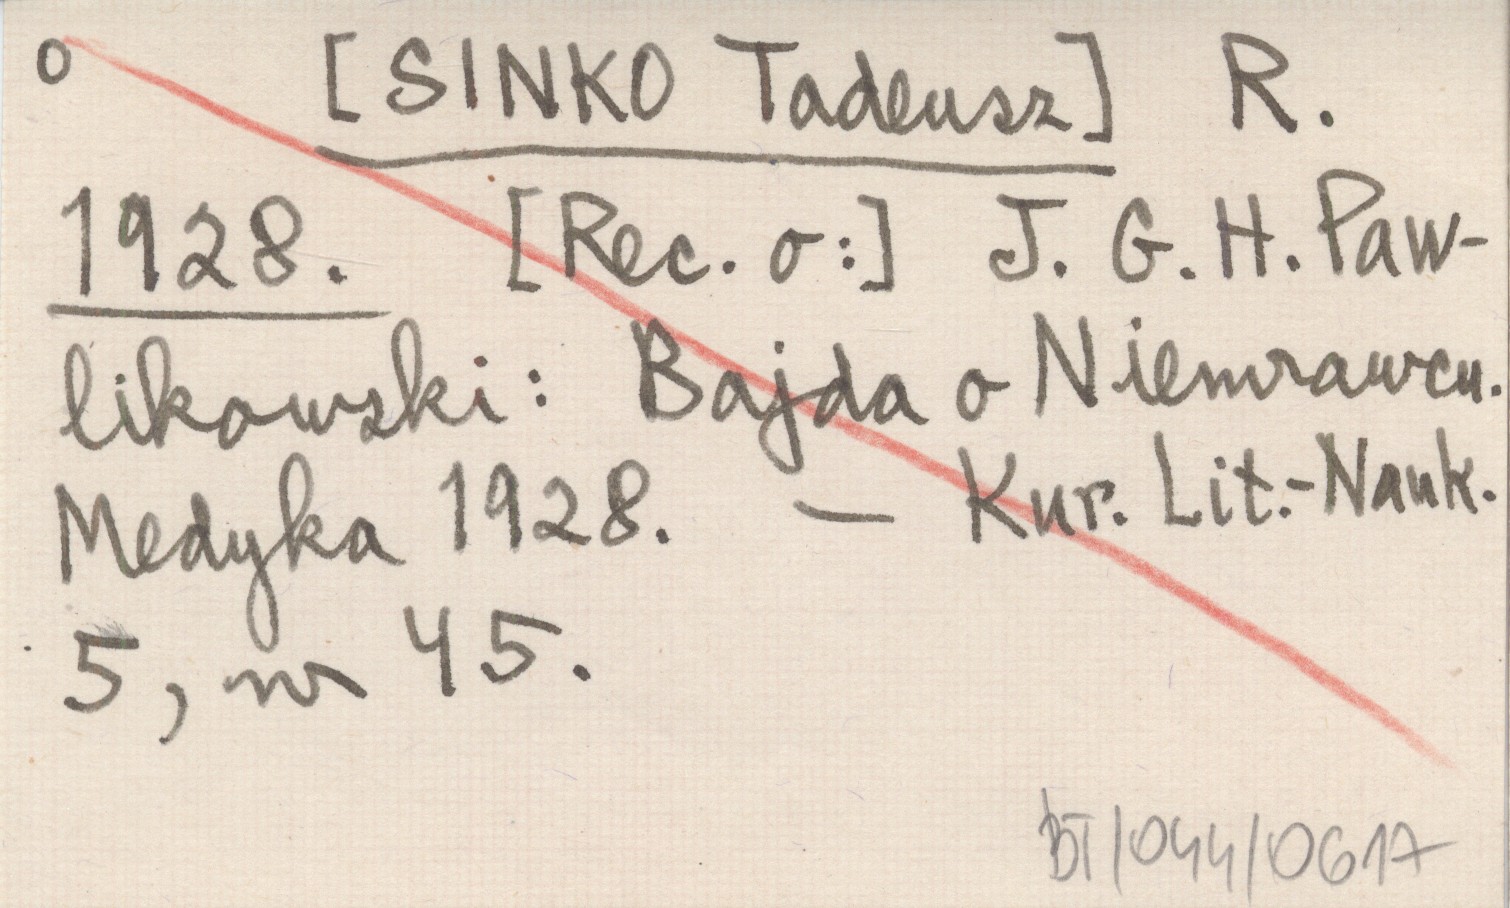 o [SINKO Tadeusz] R.
1928. [Rec. o:] J. G. H. Paw-
likowski: Bajda o Niemrawcu.
Medyka 1928. — Kur. Lit.-Nauk.
5, nr 45.
BT/044/0617